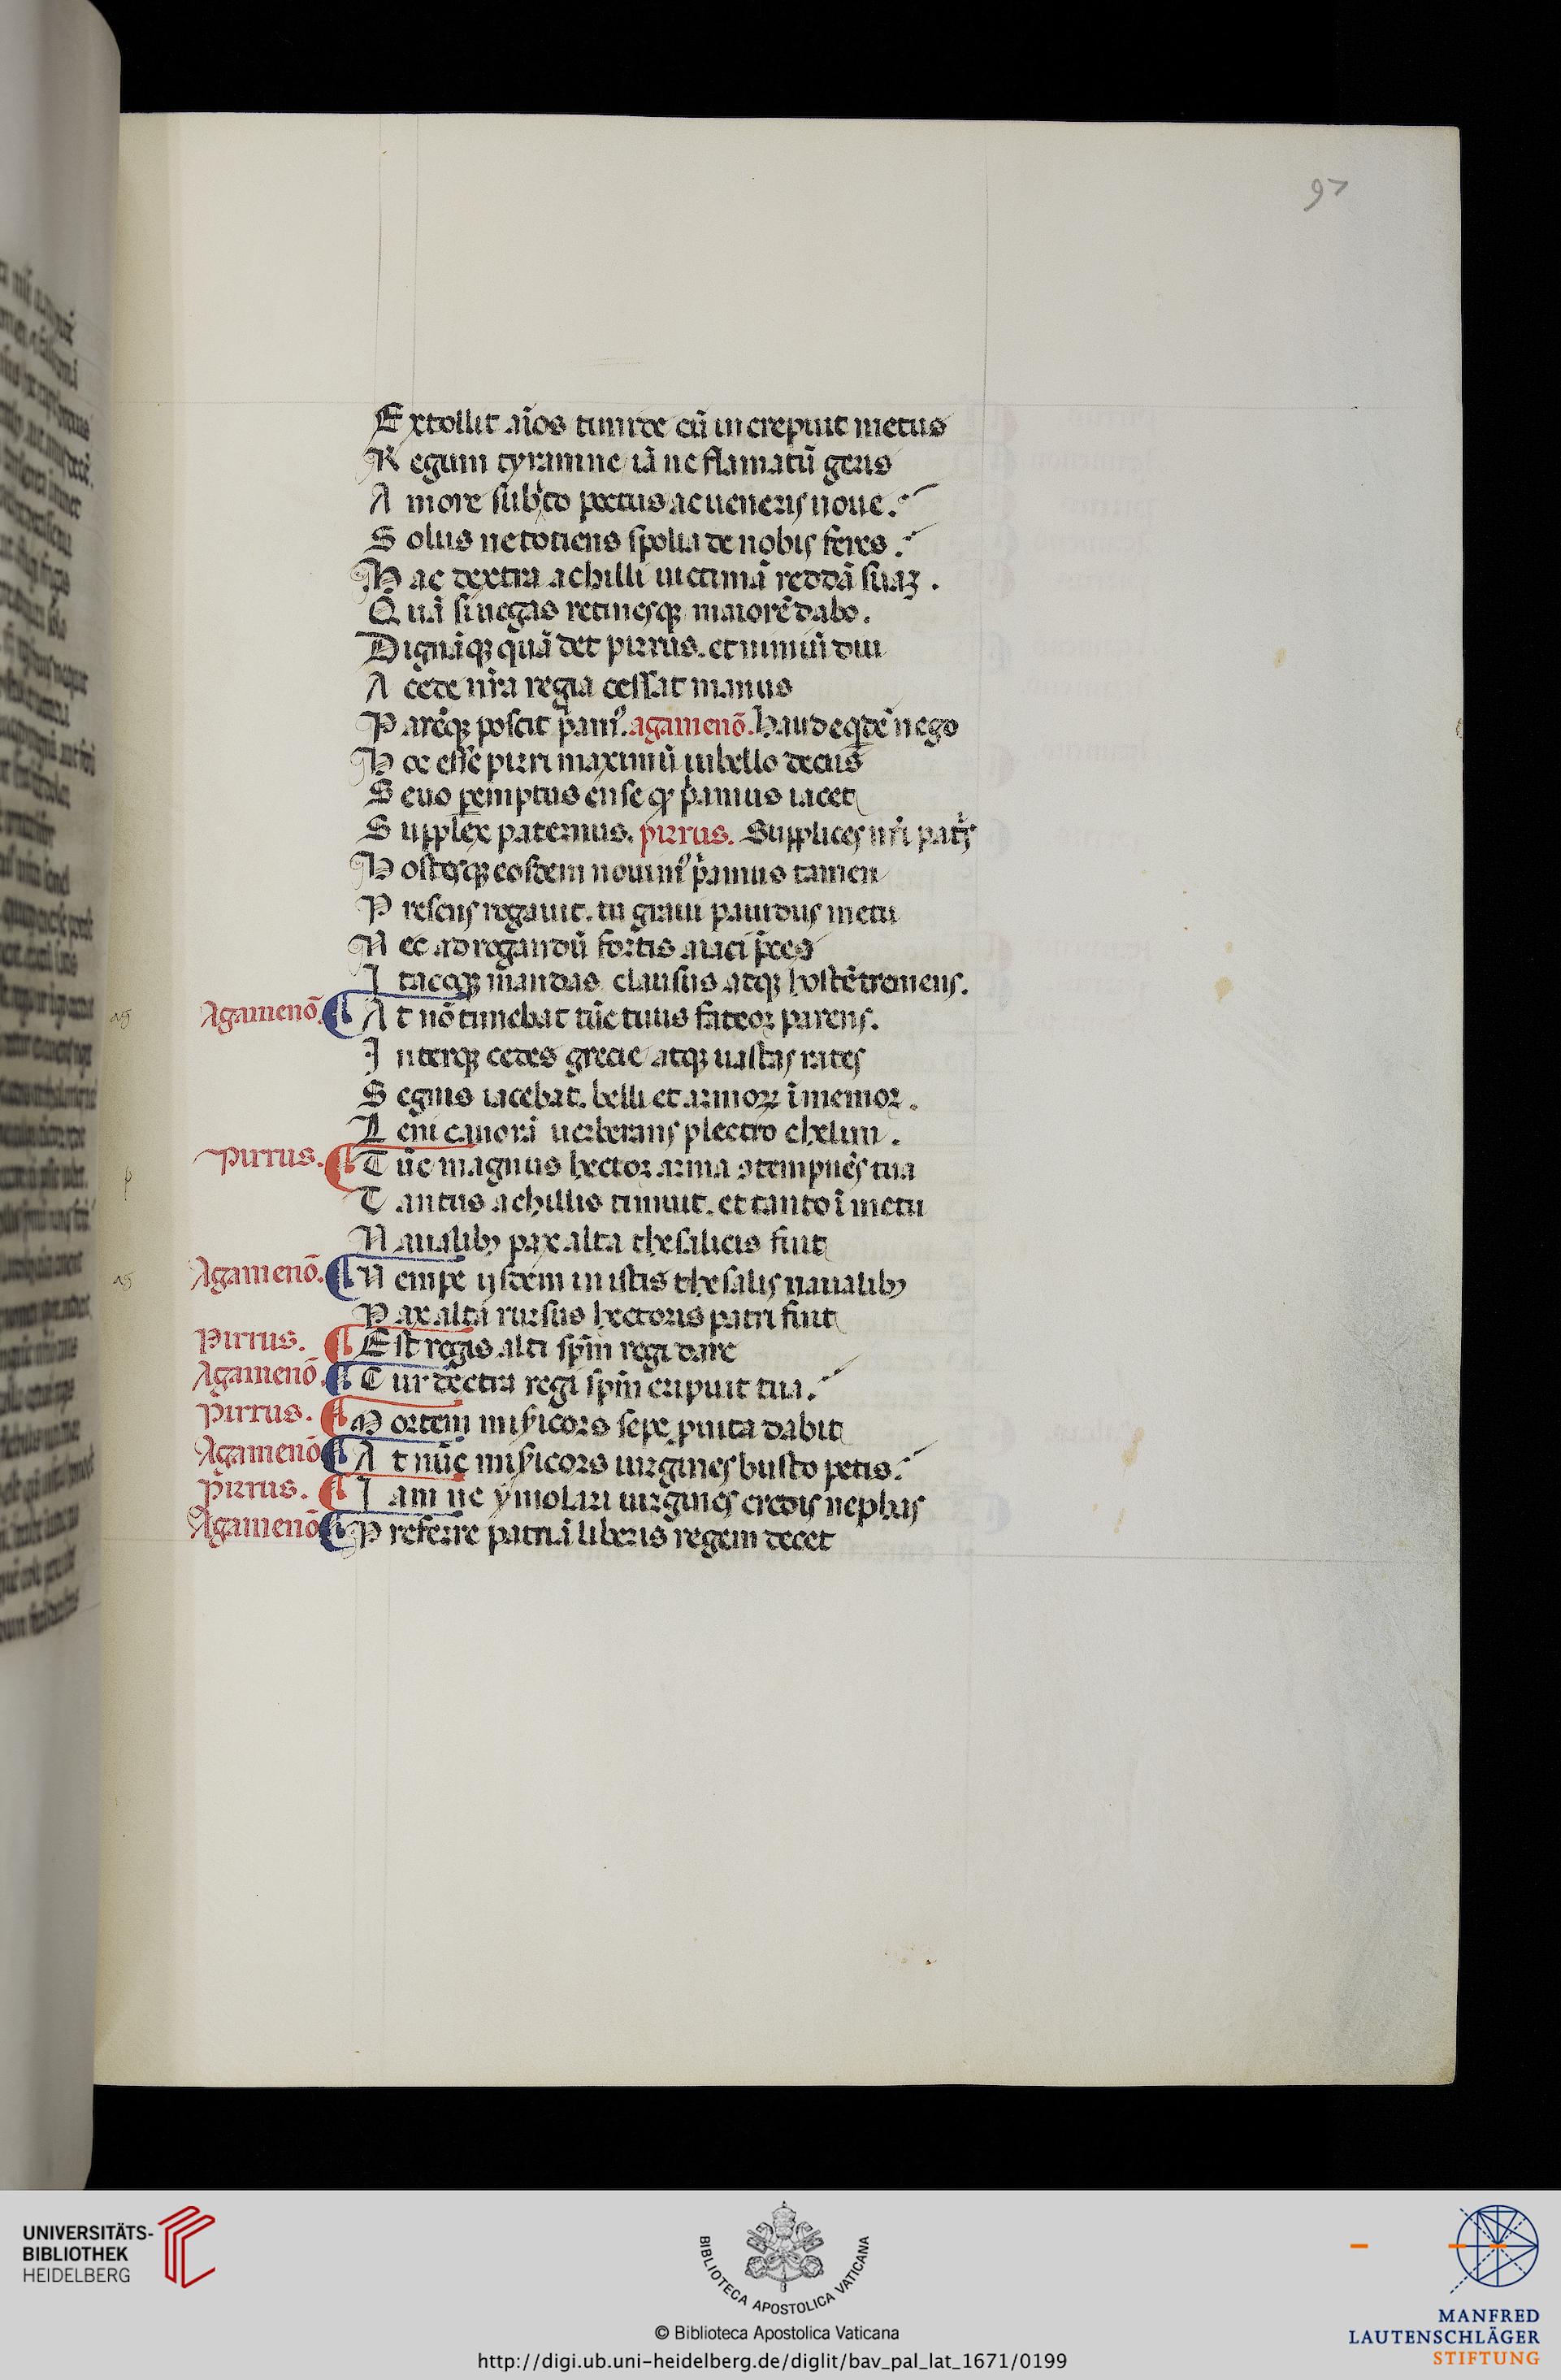 97
Extollit aīos timide cū increpuit metus
Regum tyranne iā ne flamatū geris
Amore subito pectus ac ueneris noue.
Solus ne totiens spolia de nobis feres.
Hac dextra achilli uictimā reddā suaꝫ.
Quā si negas retinesqꝫ maiorē dabo.
Dignāqꝫ quā det pirrus. et nimiū diu
A cede nr̄a regia cessat manus
Parēqꝫ poscit p̄amꝰ. agamenō. Haud eq̇dē nego
Hoc esse pirri maximū in bello decus
Seuo ꝑemptus ense qꝫ p̄amus iacet
Supplex paternus. pirrus. Supplices nr̄i patr̄s
Hostesqꝫ eosdem nouimꝰ p̄amus tamen
Presens rogauit. tu graui pauidus metu
Nec ad rogandū fortis aiaci p̄ces
Itaceqꝫ mandas clausus atqꝫ hostē tremens.
Agamenō. At nō timebat tūc tuus fateor parens.
Interqꝫ cedes grecie atqꝫ uastas rates
Segnis iacebat. belli et armoꝝ īmemor.
Leui canorā uerberans plectro chelim.
Pirrus. Tūc magnus hector arma ↄtempnēs tua
Tantus achillis timuit. et tanto ī metu
Naualibꝫ pax alta thesalicis fuit
Agamenō. Nempe ijsdem in istis thesalis naualibꝫ
Pax alta rursus hectoris patri fuit
Pirrus. Est regis alti sp̄m regi dare
Agamenō. Cur dextra regi sp̄m eripuit tua.
Pirrus. Mortem misicors sepe ꝓ uita dabit
Agamenō. At nūc misicors uirgines busto petis.
Pirrus. Iam ne ymolari uirgines credis nephas
Agamenō. Preferre patriā liberis regem decet
ag
p
ag
UNIVERSITÄTS-
BIBLIOTHEK
HEIDELBERG
BIBLIOTECA APOSTOLICA VATICANA
© Biblioteca Apostolica Vaticana
http://digi.ub.uni-heidelberg.de/diglit/bav_pal_lat_1671/0199
MANFRED
LAUTENSCHLÄGER
STIFTUNG